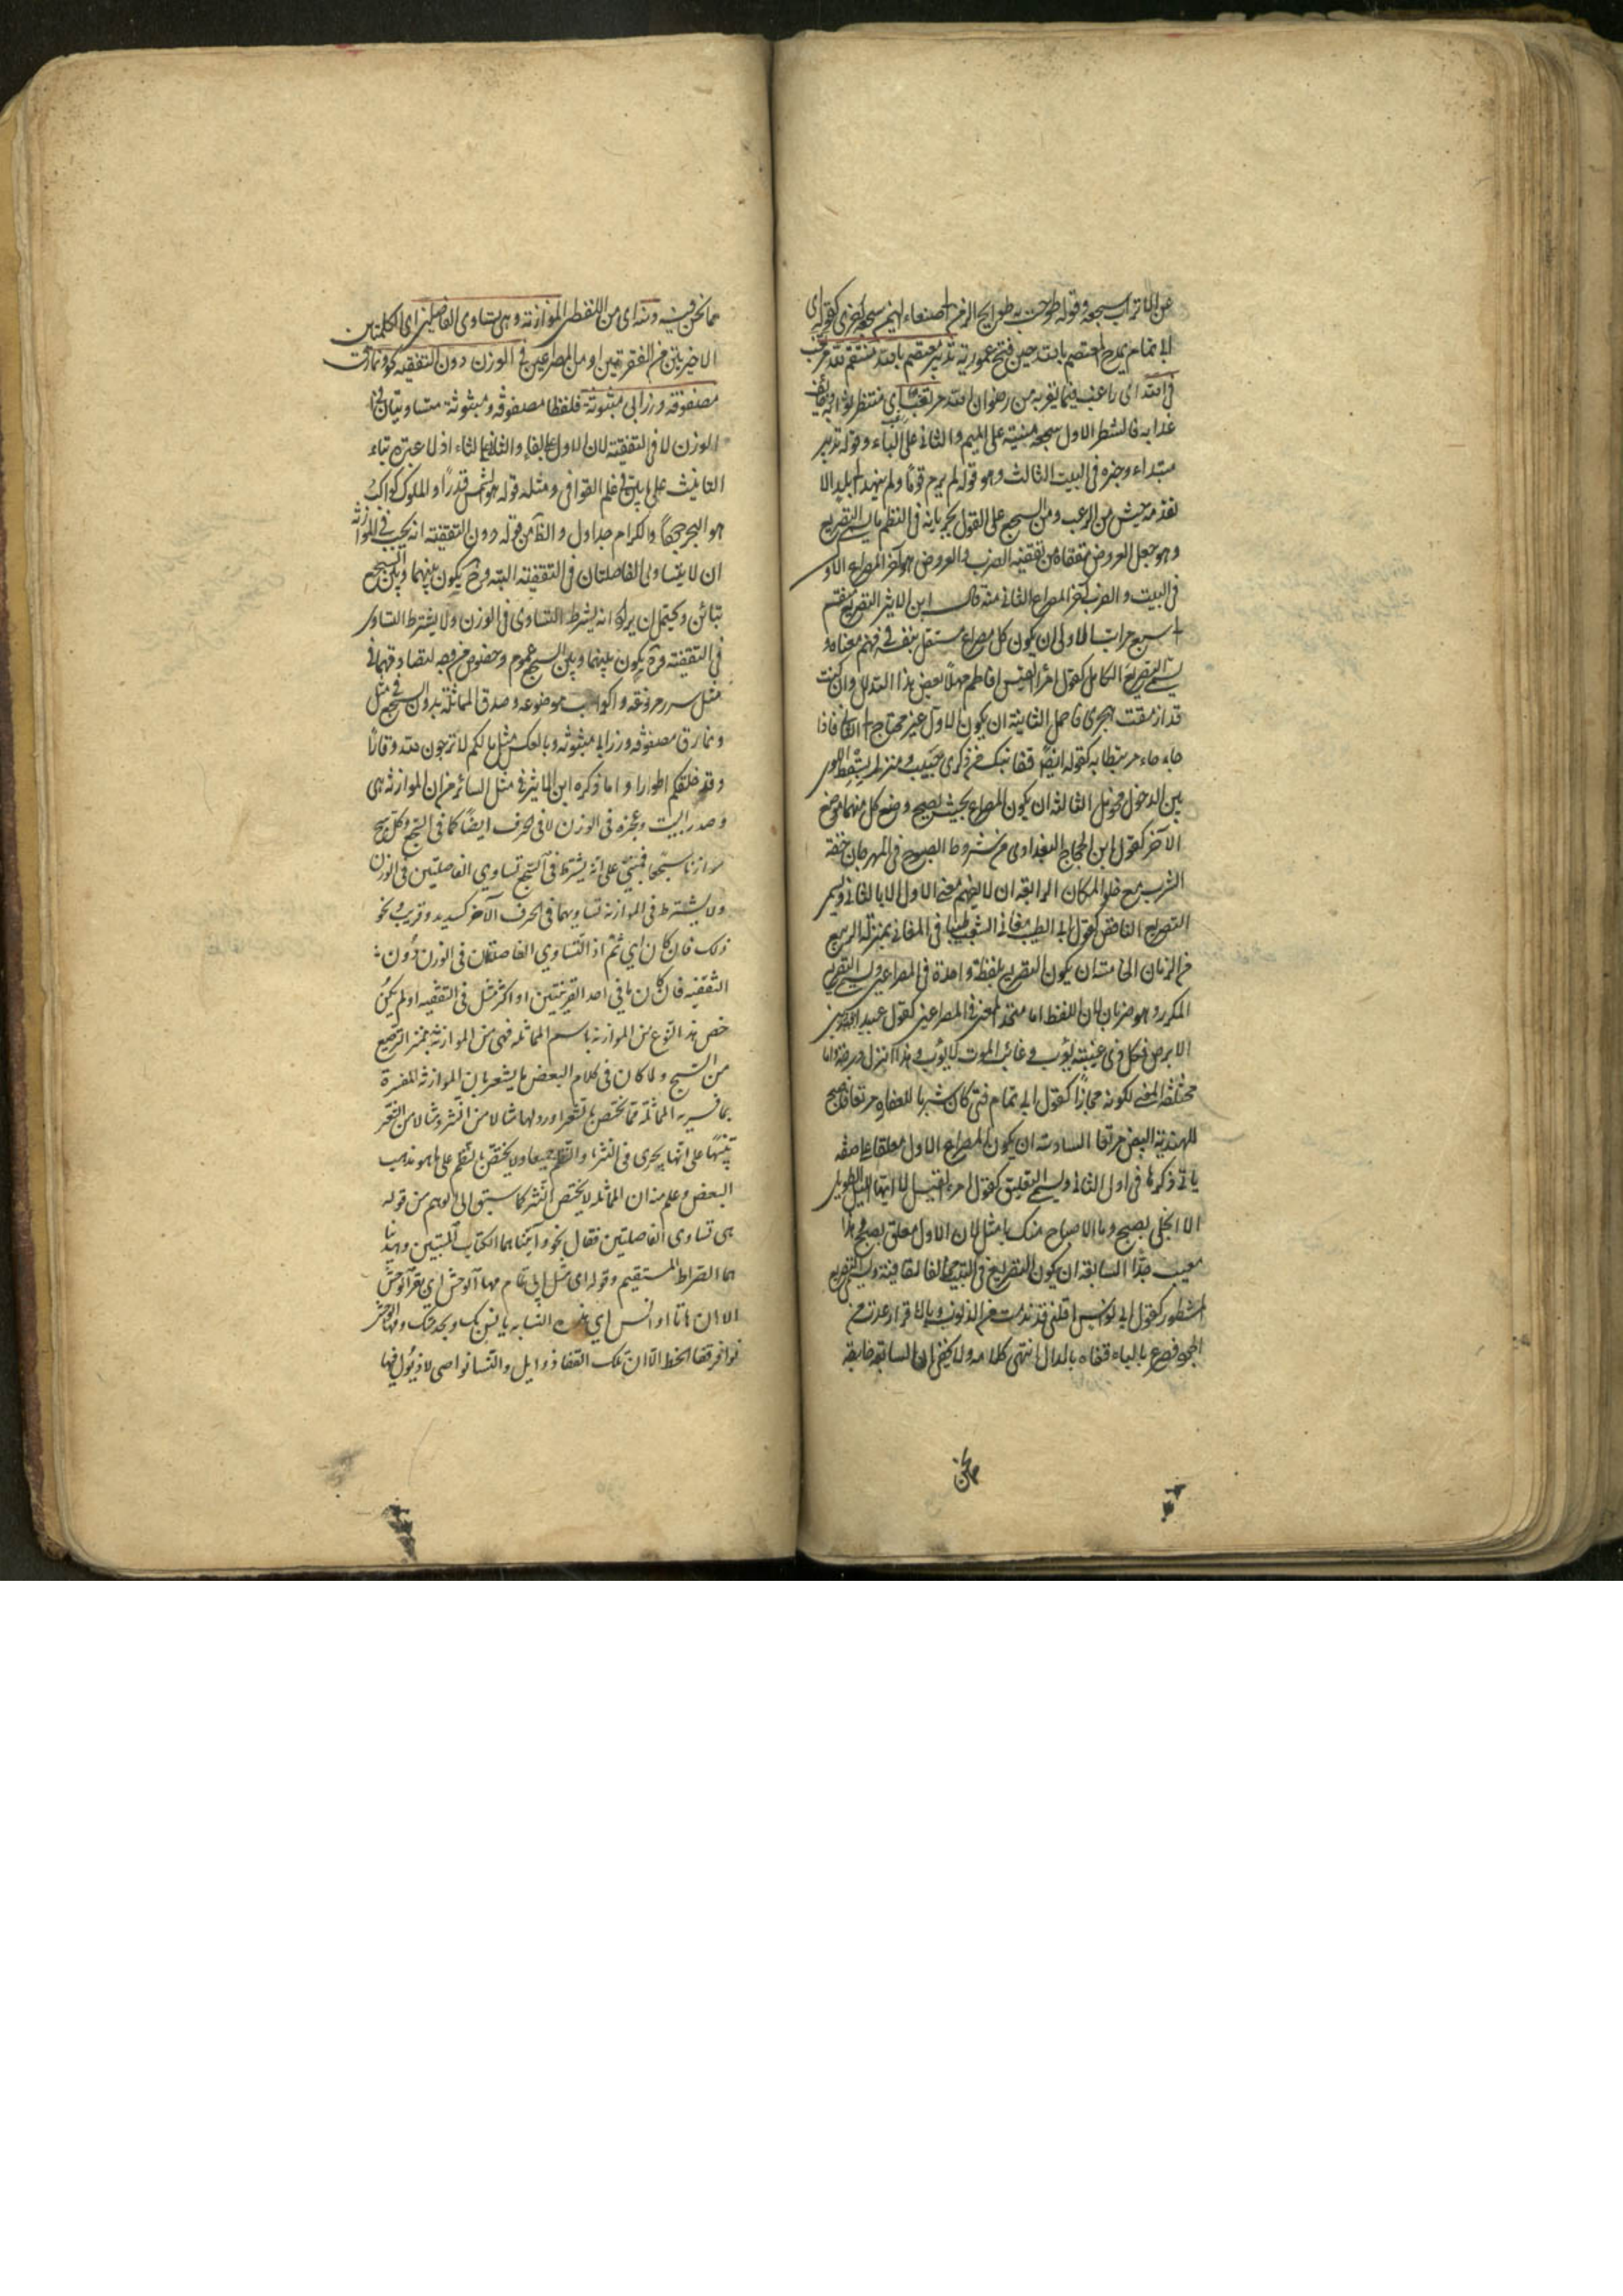 عن الاتراب سجعه وقوله طوحت به طوايح الزمن الى صنعاء اليمن سجعة اخرى كقوله اى
ابى تمام يمدح المعتصم بالله حين فتح عمورية تدبير معتصم بالله منتقم لله مرتغب
فى الله اى راغب فيما يقربه من رضوان الله مرتقب اى منتظر ثوابه وخايف
عذابه فالشطر الاول سجعة مبنية على الميم والثانى على الباء وقوله تدبير
مبتداء وخبره فى البيت الثالث وهو قوله لم يرم قوما ولم ينهد الى بلد الا
تقدمه جيش من الرعب ومن السجع على القول بجريانه فى النظم ما يسمى التصريع
وهو جعل العروض مقفاة تقفية الضرب والعروض هو آخر المصراع الاول
فى البيت والضرب آخر المصراع الثانى منه قال ابن الاثير التصريع ينقسم
الى سبع مراتب الاولى ان يكون كل مصراع مستقل بنفسه فى فهم معناه و
يسمى التصريع الكامل كقول امرأ القيس افاطم مهلا بعض هذا التدلل وان كنت
قد ازمعت هجرى فاجمل الثانية ان يكون الاول غير محتاج الى الثانى فاذا
جاء جاء مرتبطا به كقوله ايضا قفا نبك من ذكرى حبيب ومنزل بسقط اللوى
بين الدخول فحومل الثالثة ان يكون المصراع بحيث يصح وضع كل منهما موضع
الآخر كقول ابن الحجاج البغدادى من شروط الصبوح فى المهرجان خفة
الشرب مع خلو المكان الرابعة ان لا يفهم معنى الاول الا بالثانى ويسمى
التصريع الناقص كقول ابى الطيب مغانى الشعب طيبا فى المغانى بمنزلة الربيع
من الزمان الخامسة ان يكون التصريع بلفظة واحدة فى المصراعين ويسمى التصريع
المكرر وهو ضربان لان اللفظ اما متحد المعنى فى المصراعين كقول عبيد ابن
الابرص فكل ذى غيبة يؤب وغائب الموت لا يؤب وهذا انزل درجة واما
مختلف المعنى لكونه مجازا كقول ابى تمام فتى كان شربا للعفاة ومرتعا فاصبح
للهندية البيض مرتعا السادسة ان يكون المصراع الاول معلقا على صفة
ياتى ذكرها فى اول الثانى ويسمى التعليق كقول امرء القيس الا ايها الليل الطويل
الا انجلى بصبح وما الاصباح منك بامثل لان الاول معلق بصبح وهذا
معيب جدا السابعة ان يكون التصريع فى البيت مخالفا لقافيته ويسمى التصريع
المشطور كقول ابى نواس اقلنى قد ندمت من الذنوب وبالاقرار عدت من
الجحود فصرع بالباء قفاه بالدال انتهى كلامه ولا يخفى ان السابعة خارجة
مما نحن
مما نحن فيه ومنه اى من اللفظى الموازنة وهى تساوى الفاصلتين اى الكلمتين
الاخيرتين من الفقرتين او من المصراعين فى الوزن دون التقفيه نحو ونمارق
مصفوفة وزرابى مبثوثة فلفظا مصفوفة ومبثوثة متساويتان فى
الوزن لا فى التقفية لان الاول على الفاء والثانى على الثاء اذ لا عبرة بتاء
التانيث على ما بين فى علم القوافى ومثله قوله هو الشمس قدرا والملوك كواكب
هو البحر جودا والكرام جداول والظاهر من قوله دون التقفية انه يجب فى الموازنة
ان لا يتساوى الفاصلتان فى التقفية البتة وح يكون بينهما وبين السجع
تباين ويحتمل ان يراد انه يشترط التساوى فى الوزن ولا يشترط التساوى
فى التقفية وح يكون بينهما وبين السجع عموم وخصوص من وجه لتصادقهما فى
مثل سرر مرفوعة واكواب موضوعه وصدق المماثلة بدون السجع فى مثل
ونمارق مصفوفه وزرابى مبثوثه وبالعكس مثل ما لكم لا ترجون لله وقارا
وقد خلقكم اطوارا واما ذكره ابن الاثير فى مثل السائر من ان الموازنة هى
وصدر البيت وعجزه فى الوزن لا فى الحرف ايضا كما فى السجع فكل سجع
موازنا سجعا فمبنى على انه يشترط فى السجع تساوي الفاصلتين فى الوزن
ولا يشترط فى الموازنة تساويهما فى الحرف الآخر كسديد وقريب ونحو
ذلك فان كان اي ثم اذ التساوي الفاصلتان فى الوزن دون
التقفيه فان كان ما فى احد القرينتين او اكثر مثل فى التقفيه او لم يكن
خص هذا النوع من الموازنة باسم المماثلة فهى من الموازنة بمنزلة الترصيع
من السجع ولما كان فى كلام البعض ما يشعر بان الموازنة المفسرة
بما فسر به المماثلة مما يختص بالشعر اورد لها مثالا من النثر ومثالا من الشعر
تنبيها على انها يجرى فى النثر والنظم جميعا ولا يختص بالنظم على ما هو مذهب
البعض وعلم منه ان المماثله لا يختص النثر كما سبق الى الوهم من قوله
هى تساوى الفاصلتين فقال نحو وآتيناهما الكتاب المستبين وهديناهما
هما الصراط المستقيم وقوله اى مثل ابى تمام مها الوحش اي بقر الوحش
الا ان هاتا اوانس اي هذه النساء يانس بك ويحدثك ومها الوحش
نوافر قنا الخط الا ان تلك القناة ذوابل والنساء نواضر لا ذبول فيها